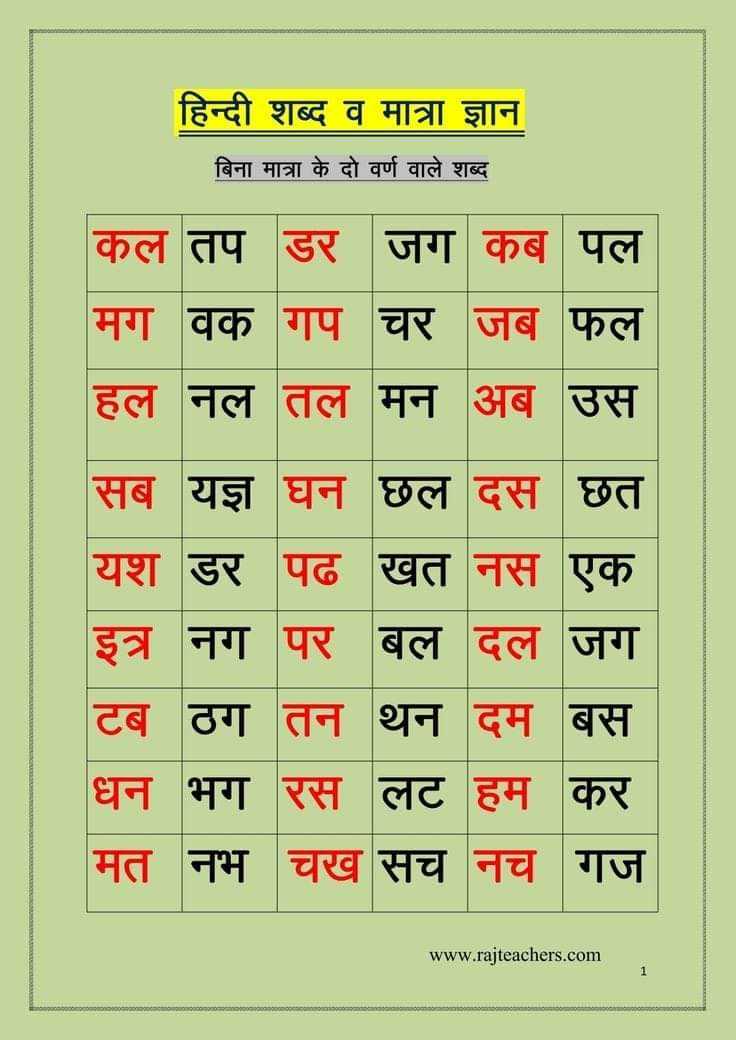 हिन्दी शब्द व मात्रा ज्ञान
बिना मात्रा के दो वर्ण वाले शब्द
कल तप डर जग कब पल
मग वक गप चर जब फल
हल नल तल मन अब उस
सब यज्ञ घन छल दस छत
यश डर पढ खत नस एक
इत्र नग पर बल दल जग
टब ठग तन थन दम बस
धन भग रस लट हम कर
मत नभ चख सच नच गज
www.rajteachers.com
1